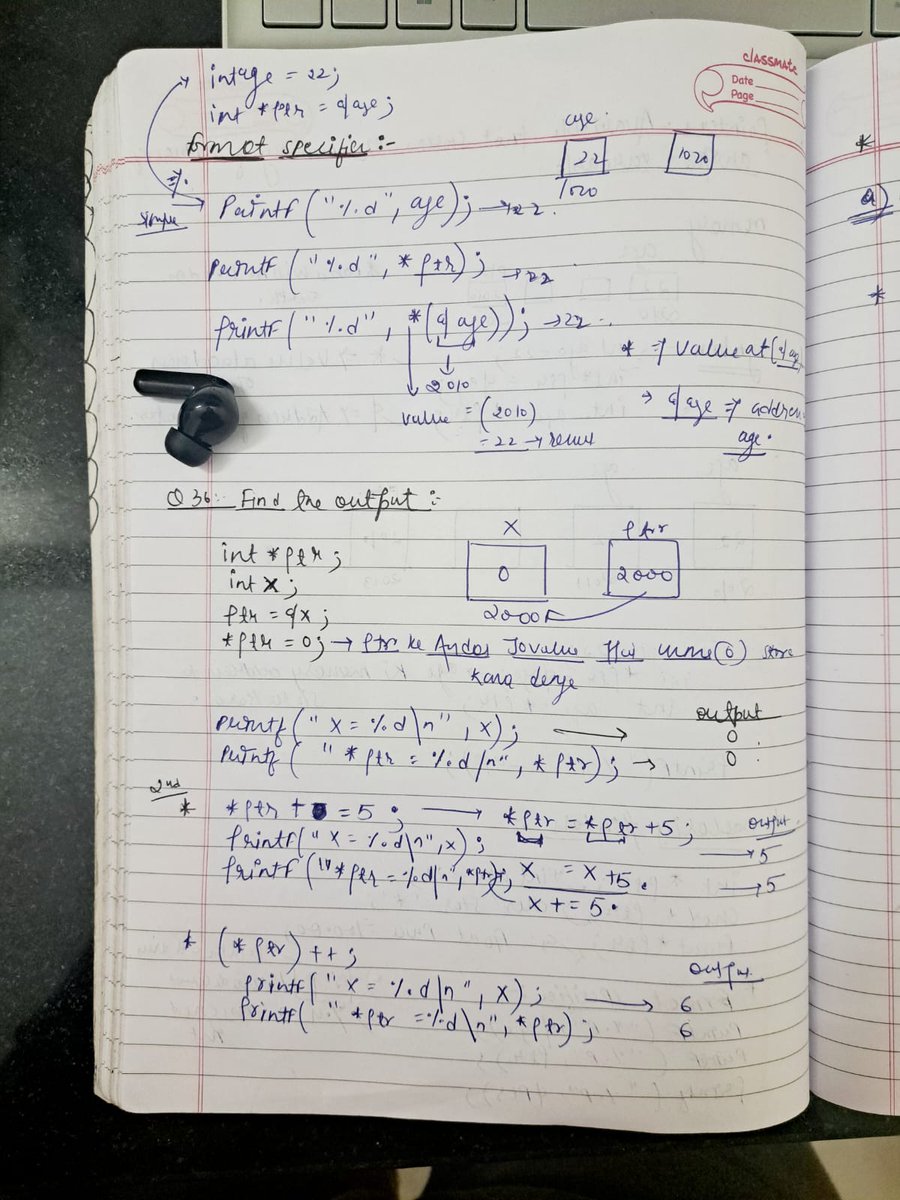 classmate
Date
Page
int age = 22;
int *ptr = &age;
age
format specifier :-
22
1020
1020
%.
simple
Printf ("%d", age); → 22.
printf ("%d", *ptr); → 22
printf ("%d", *(&age)); → 22.
* ⇒ value at (&age
2010
value = (2010)
→ &age ⇒ address
= 22 → 
age.
Q 36:- Find the output :-
X
ptr
int *ptr;
int x;
0
2000
ptr = &x;
2000
*ptr = 0; → ptr ke Andar Jo value Hai usme (0) store
kara denge
output
printf (" x = %d\n", x); → 0
printf ( " *ptr = %d\n", *ptr); → 0
2nd
* *ptr += 5; → *ptr = *ptr + 5;
output
printf(" x = %d\n", x); → 5
printf ("*ptr = %d\n", *ptr); x = x + 5. → 5
x += 5.
* (*ptr) ++;
output
printf(" x = %d\n", x); → 6
printf( " *ptr = %d\n", *ptr); 6
*
a)
*